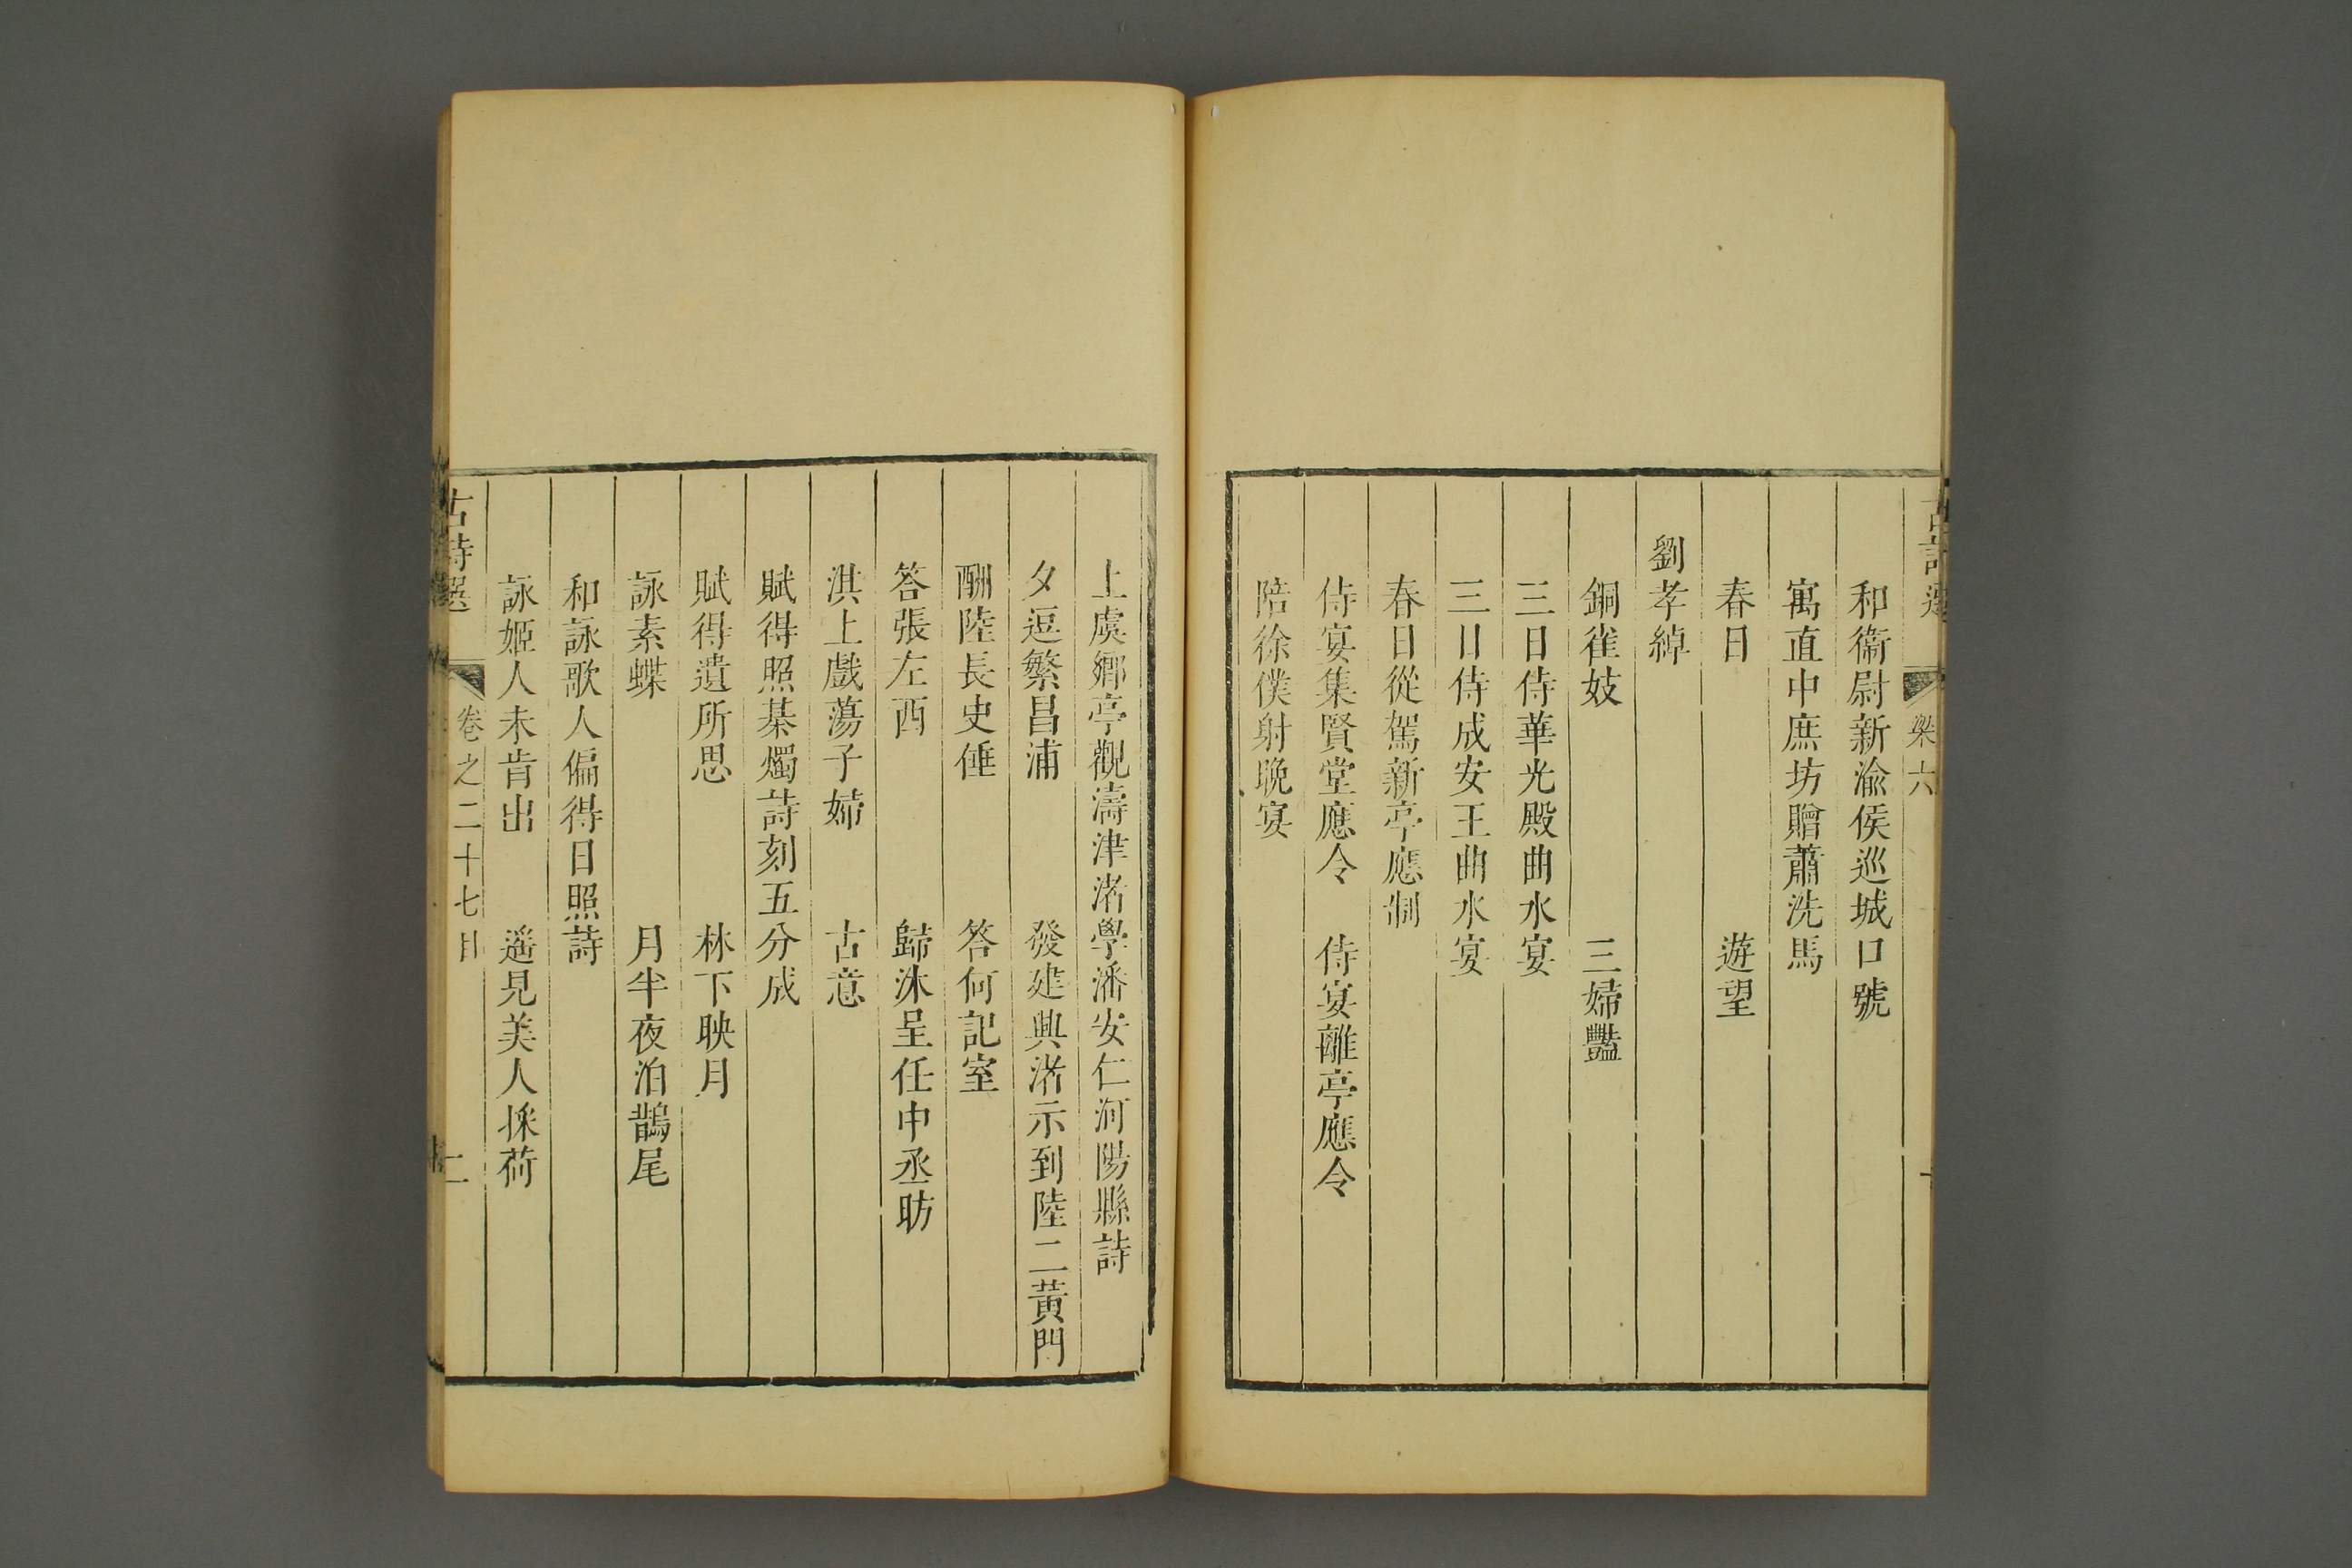 古詩選 梁六
和衞尉新渝侯巡城口號
寓直中庶坊贈蕭洗馬
春日 遊望
劉孝綽
銅雀妓 三婦豔
三日侍華光殿曲水宴
三日侍成安王曲水宴
春日從駕新亭應制
侍宴集賢堂應令 侍宴離亭應令
陪徐僕射晚宴
上虞鄉亭觀濤津渚學潘安仁河陽縣詩
夕逗繁昌浦 發建興渚示到陸二黃門
酬陸長史倕 答何記室
答張左西 歸沐呈任中丞昉
淇上戲蕩子婦 古意
賦得照棊燭詩刻五分成
賦得遺所思 林下映月
詠素蝶 月半夜泊鵲尾
和詠歌人偏得日照詩
詠姬人未肯出 遙見美人採荷
古詩選 卷之二十七目 二